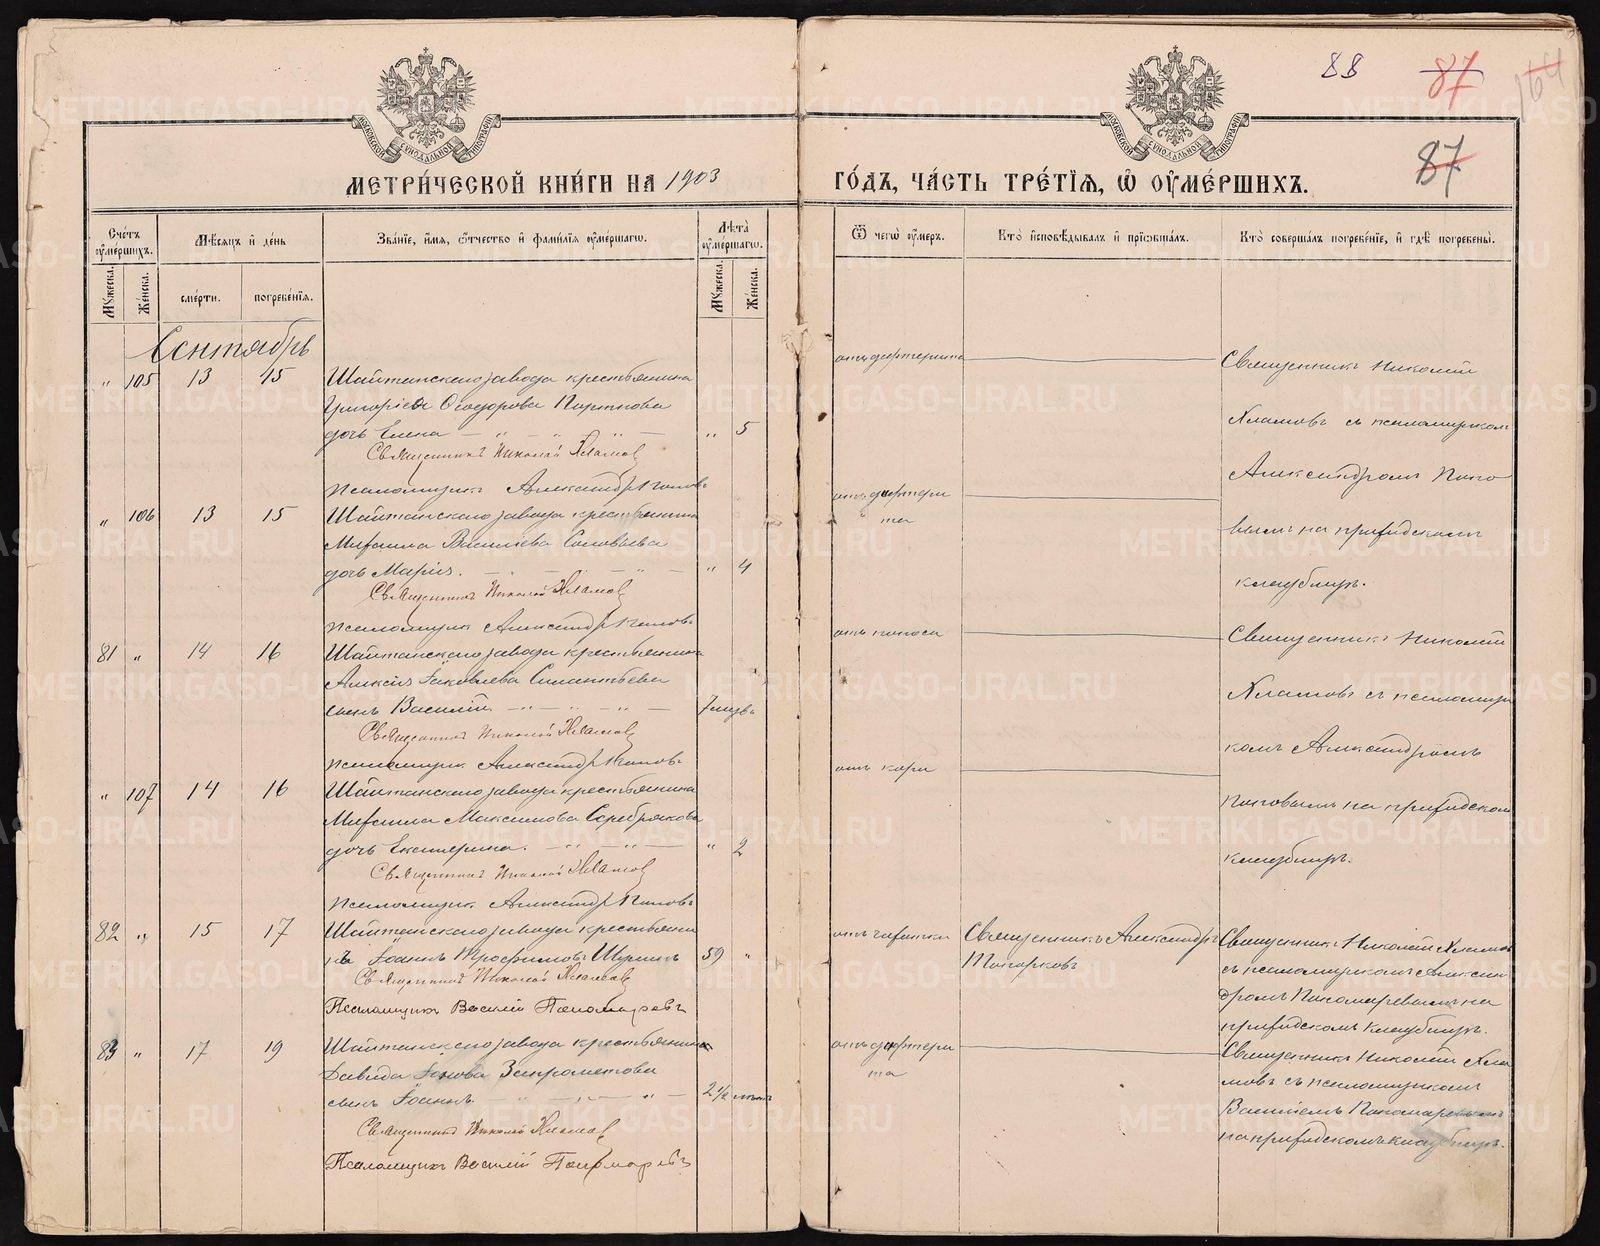 88
87
164
87
МЕТРИ́ЧЕСКОЙ КНИ́ГИ НА 1903
ГО́ДЪ, ЧА́СТЬ ТРЕ́ТІѦ, Ѡ҆ ОУ҆МЕ́РШИХЪ.
Сче́тъ оу҆ме́ршихъ.
Мѣ́сяцъ и҆ де́нь
Зва́нїе, и҆́мя, ѻ҆́тчество и҆ фами́лїя оу҆ме́ршагѡ.
Лѣ̀та оу҆ме́ршагѡ.
Ѿ чегѡ̀ оу҆́меръ.
Кто̀ и҆сповѣ́дывалъ и҆ прїѡбща́лъ.
Кто̀ соверша́лъ погребе́нїе, и҆ гдѣ̀ погребены̀.
Мꙋ́жеска.
Же́нска.
сме́рти.
погребе́нїя.
Мꙋ́жеска.
Же́нска.
Сентябрь
" 105 13 15 Шайтанскаго завода крестьянина
Григорія Ѳеодорова
дочь Елена " 5
Священникъ Николай Хламов
Псаломщикъ Александр Попов
отъ дифтерита
Священникъ Николай
Хламовъ съ псаломщиком
Александромъ Попо
вымъ на приходскомъ
кладбищѣ.
" 106 13 15 Шайтанскаго завода крестьянина
Михаила Василіева Соловьева
дочь Марія. " 4
Священник Николай Хламов
Псаломщик Александр Попов
отъ дифтери
та
81 " 14 16 Шайтанскаго завода крестьянина
Алексія Іаковлева Силантьева
сынъ Василій. 7 мѣсяц.
Священник Николай Хламов
Псаломщик Александр Попов
отъ поноса
Священникъ Николай
Хламовъ съ псаломщи
комъ Александромъ
Поповымъ на приходском
кладбищѣ.
" 107 14 16 Шайтанскаго завода крестьянина
Михаила Максимова Серебрякова
дочь Екатерина. " 2
Священникъ Николай Хламов
Псаломщик Александр Попов
отъ кори
82 " 15 17 Шайтанскаго завода крестьяни
нъ Іоаннъ Трофимовъ 59 "
Священник Николай Хламов
Псаломщикъ Василій Пономаревъ
отъ чахотки
Священникъ Александръ
Топорковъ
Священникъ Николай Хламов
съ псаломщикомъ Алексан
дромъ Пономаревымъ на
приходскомъ кладбищѣ.
83 " 17 19 Шайтанскаго завода крестьянина
Давида Іонова Запрометова
сынъ Іоаннъ 2½ мѣсяц
Священник Николай Хламов
Псаломщикъ Василій Пономаревъ
отъ дифтери
та
Священникъ Николай Хла
мовъ съ псаломщикомъ
Василіемъ Пономаревымъ
на приходскомъ кладбищѣ.
METRIKI.GASO-URAL.RU